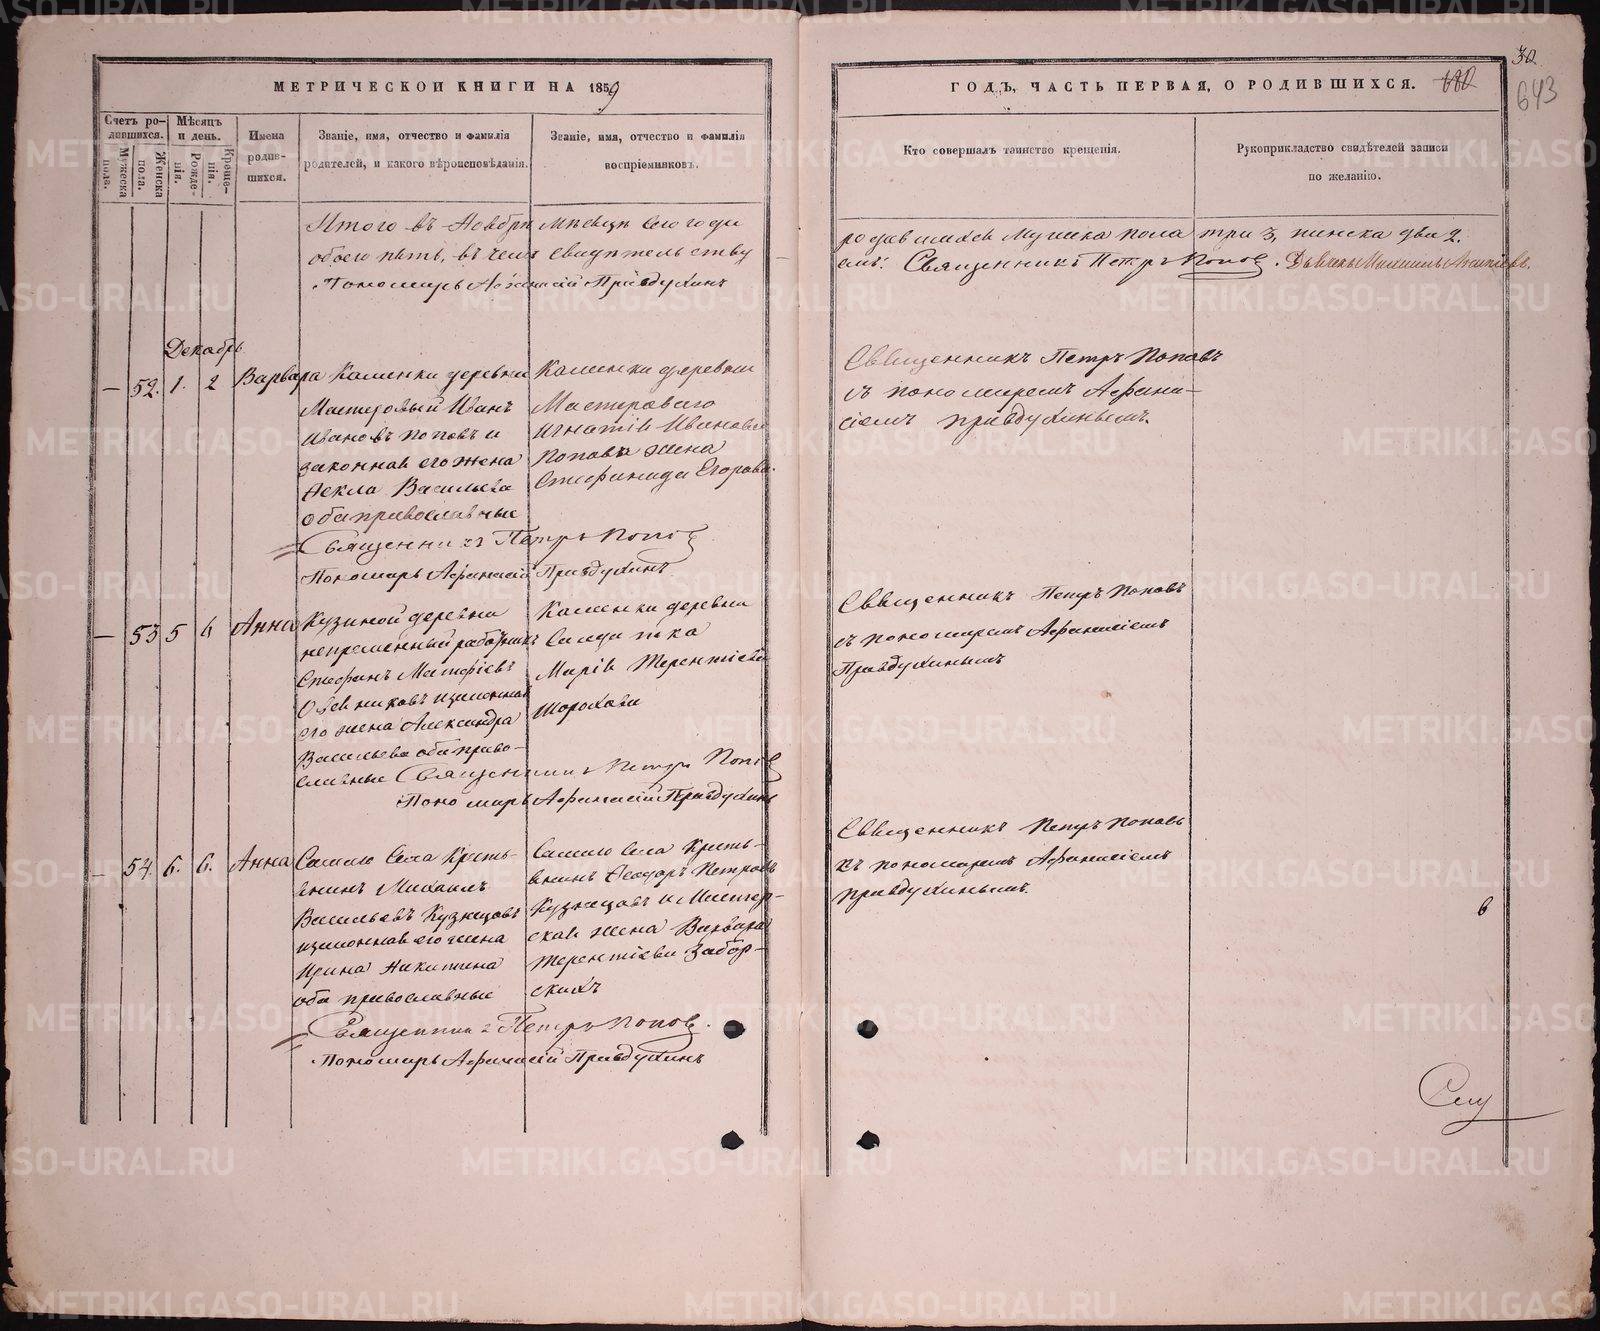 МЕТРИЧЕСКОЙ КНИГИ НА 1859
ГОДЪ, ЧАСТЬ ПЕРВАЯ, О РОДИВШИХСЯ.
30
643
Счетъ ро-
дившихся.
Мужеска
пола.
Женска
пола.
Мѣсяцъ
и день.
Рожде-
нія.
Креще-
нія.
Имена
родив-
шихся.
Званіе, имя, отчество и фамилія
родителей, и какого вѣроисповѣданія.
Званіе, имя, отчество и фамилія
воспріемниковъ.
Кто совершалъ таинство крещенія.
Рукоприкладство свидѣтелей записи
по желанію.
Итого въ Ноябрѣ мѣсяцѣ сего года
родившихся мужска пола три 3, женска два 2.
обоего пять, въ чемъ свидѣтельству
емъ: Священникъ Петръ Поповъ.
Пономарь Афанасій Правдухинъ
Декабрь
— 52. 1. 2 Варвара
Каменки деревни
Мастеровый Иванъ
Ивановъ Поповъ и
законная его жена
Фекла Васильева
оба православные
Каменки деревни
Мастероваго
Игнатія Иванова
Попова жена
Стефанида Егорова.
Священникъ Петръ Поповъ
съ пономаремъ Афана-
сіемъ Правдухинымъ.
Священникъ Петръ Поповъ
Пономарь Афанасій Правдухинъ
— 53 5 6 Анна
Кузиной деревни
непременный работникъ
Стефанъ Матфіевъ
его жена Александра
Васильева оба право-
славные
Каменки деревни
Марія Терентіева
Шорохова
Священникъ Петръ Поповъ
съ пономаремъ Афанасіемъ
Правдухинымъ
Священникъ Петръ Поповъ
Пономарь Афанасій Правдухинъ
— 54. 6. 6. Анна
Самаго села Кресть-
янинъ Михаилъ
Васильевъ Кузнецовъ
изаконная его жена
Ирина Никитина
оба православные
Самаго села Кресть-
янинъ Феодоръ Петровъ
Кузнецовъ и Мастер-
ская жена Варвара
Терентіева Забор-
скихъ
Священникъ Петръ Поповъ
съ пономаремъ Афанасіемъ
Правдухинымъ.
Священникъ Петръ Поповъ.
Пономарь Афанасій Правдухинъ
METRIKI.GASO-URAL.RU